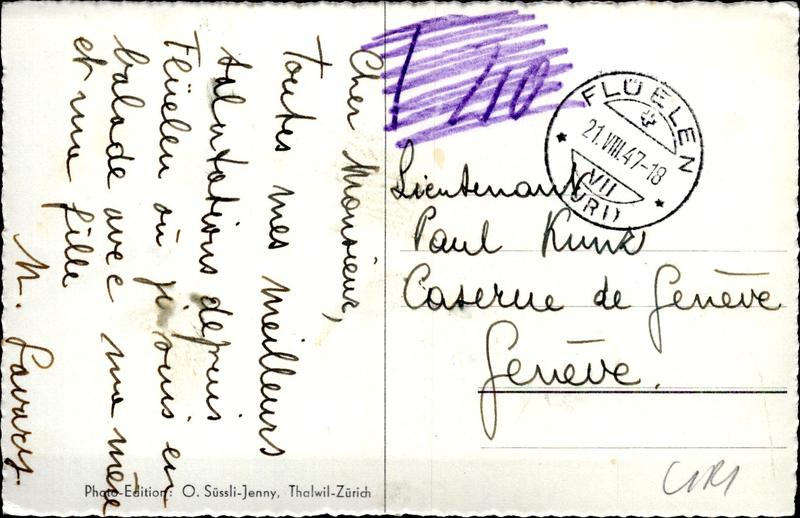 Cher Monsieur,
Toutes mes meilleurs
salutations depuis
Flüelen où je suis en
balade avec ma mère
et ma fille
Photo-Edition: O. Süssli-Jenny, Thalwil-Zürich
FLÜELEN
21.VIII.47-18
VII
(URI)
Lieutenant
Paul Kunz
Caserne de Genève
Genève.